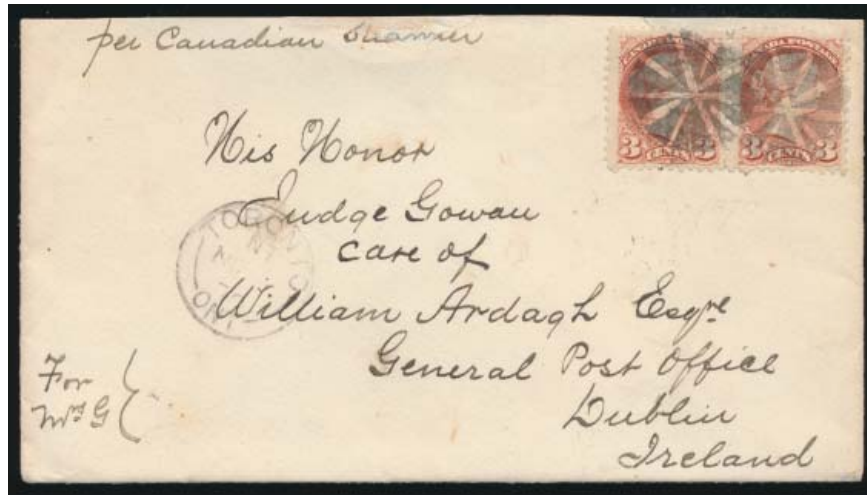 per Canadian Steamer
3 CENTS 3
3 CENTS 3
His Honor
Judge Gowan
care of
William Ardagh Esqre
General Post Office
Dublin
Ireland
For
Mrs G
TORONTO
ONT